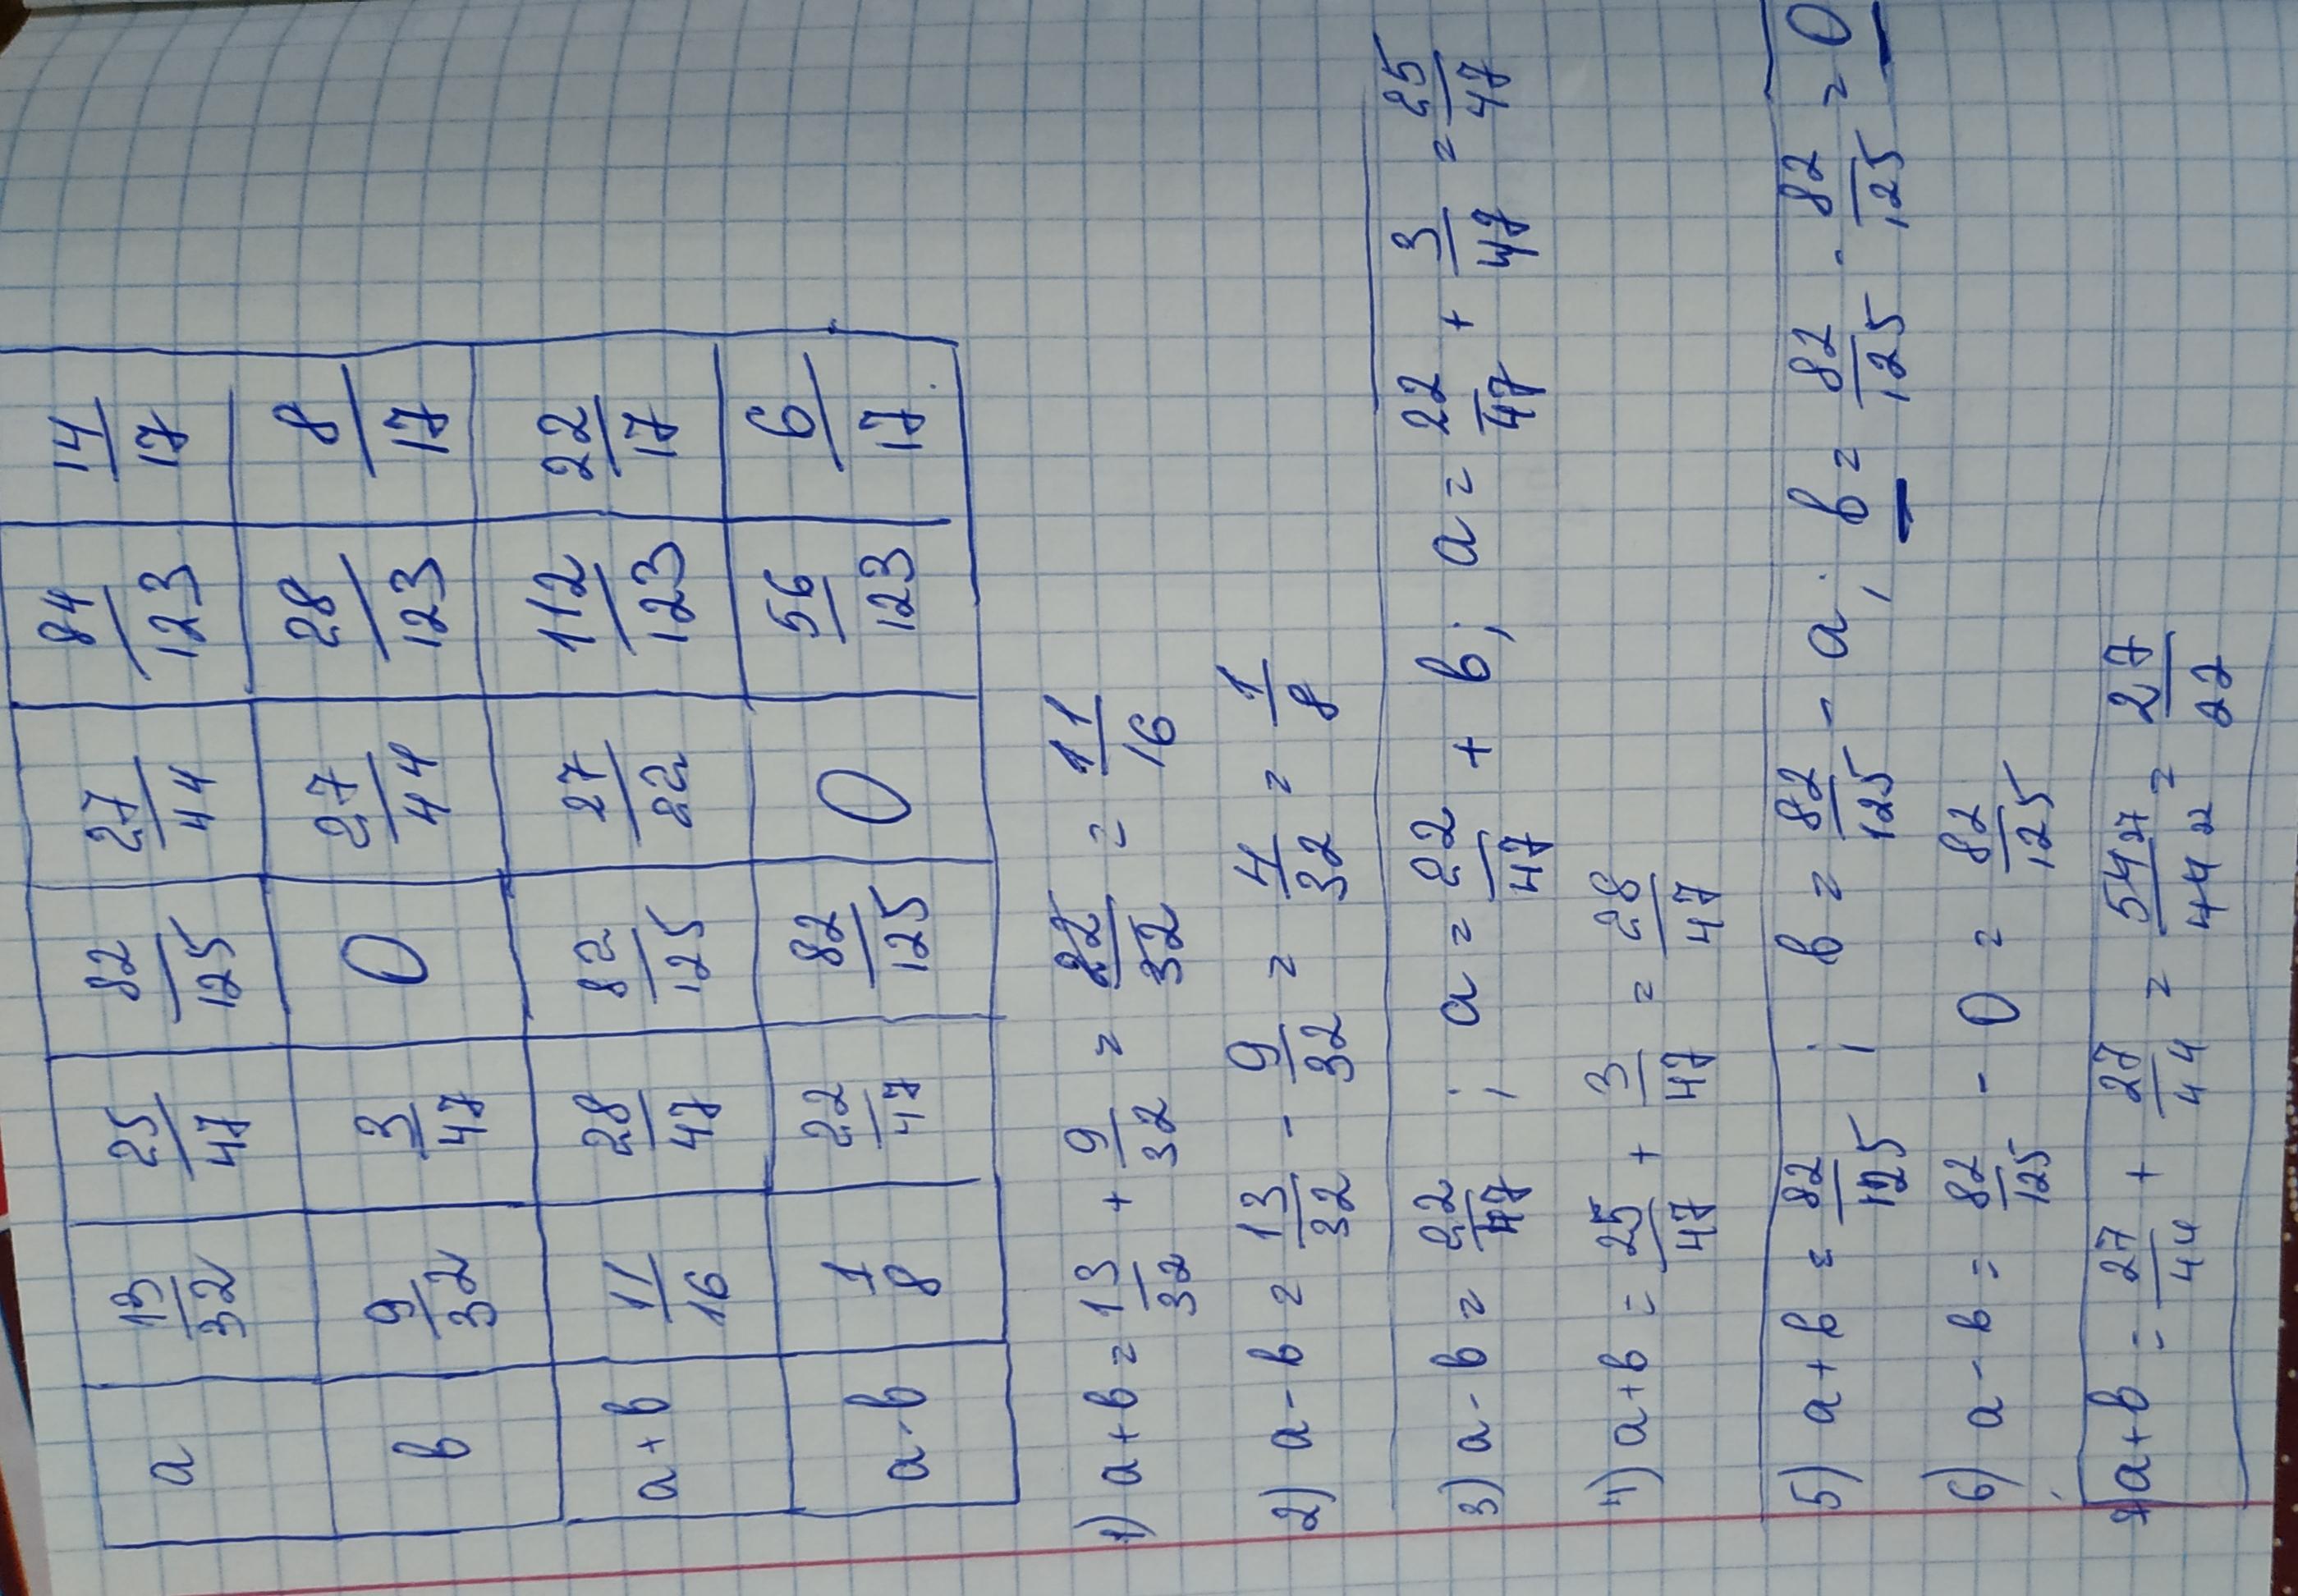 a 13/32 25/47 82/125 27/44 84/123 14/17
b 9/32 3/47 0 27/44 28/123 8/17
a+b 11/16 28/47 82/125 27/22 112/123 22/17
a-b 1/8 22/47 82/125 0 56/123 6/17
1) a+b = 13/32 + 9/32 = 22/32 = 11/16
2) a-b = 13/32 - 9/32 = 4/32 = 1/8
3) a-b = 22/47 ; a = 22/47 + b; a = 22/47 + 3/47 = 25/47
4) a+b = 25/47 + 3/47 = 28/47
5) a+b = 82/125 ; b = 82/125 - a; b = 82/125 - 82/125 = 0
6) a-b = 82/125 - 0 = 82/125
7) a+b = 27/44 + 27/44 = 54 27/44 22 = 27/22